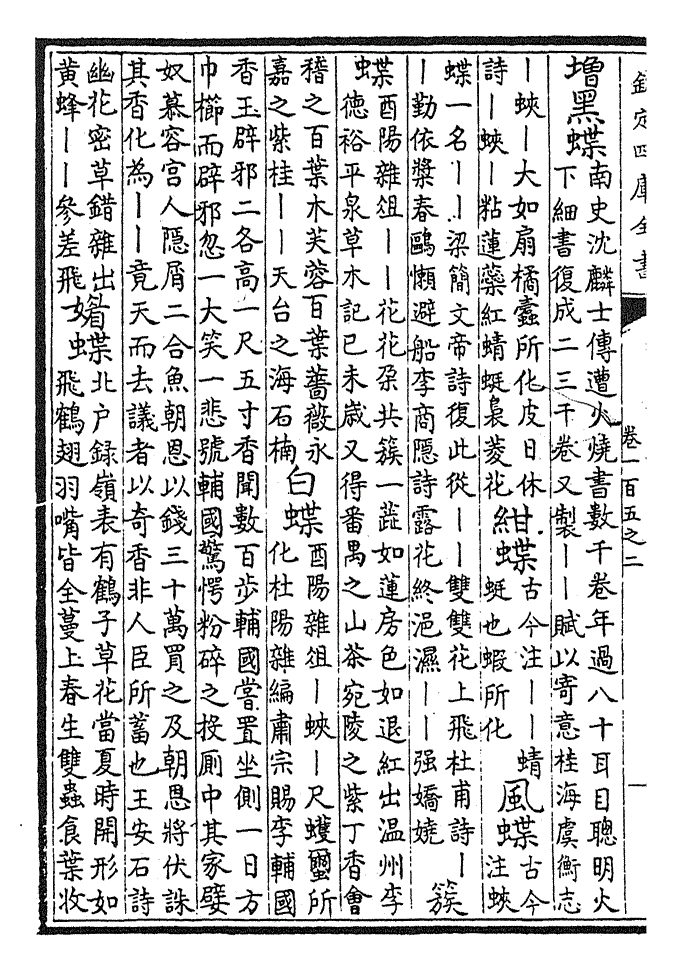 欽定四庫全書
卷一百五之二
一
增黑蝶
南史沈麟士傳遭火燒書數千卷年過八十耳目聰明火
下細書復成二三千卷又製｜｜賦以寄意桂海虞衡志
｜蛺｜大如扇橘蠹所化皮日休
詩｜蛺｜粘蓮蘂紅蜻蜓裊菱花
紺蝶
古今注｜｜蜻
蜓也蝦所化
風蝶
古今
注蛺
蝶一名｜｜梁簡文帝詩復此從｜｜雙雙花上飛杜甫詩｜
｜勤依槳春鷗懶避船李商隱詩露花終浥濕｜｜强嬌嬈
簇
蝶
酉陽雜俎｜｜花花朶共簇一蘂如蓮房色如退紅出温州李
德裕平泉草木記已未嵗又得番禺之山茶宛陵之紫丁香會
稽之百葉木芙蓉百葉薔薇永
嘉之紫桂｜｜天台之海石楠
白蝶
酉陽雜俎｜蛺｜尺蠖蠒所
化杜陽雜編肅宗賜李輔國
香玉辟邪二各高一尺五寸香聞數百步輔國嘗置坐側一日方
巾櫛而辟邪忽一大笑一悲號輔國驚愕粉碎之投厠中其家嬖
奴慕容宫人隱屑二合魚朝恩以錢三十萬買之及朝恩將伏誅
其香化為｜｜竟天而去議者以奇香非人臣所蓄也王安石詩
幽花密草錯雜出
黄蜂｜｜參差飛
媚蝶
北户録嶺表有鶴子草花當夏時開形如
飛鶴翅羽嘴皆全蔓上春生雙蟲食葉收